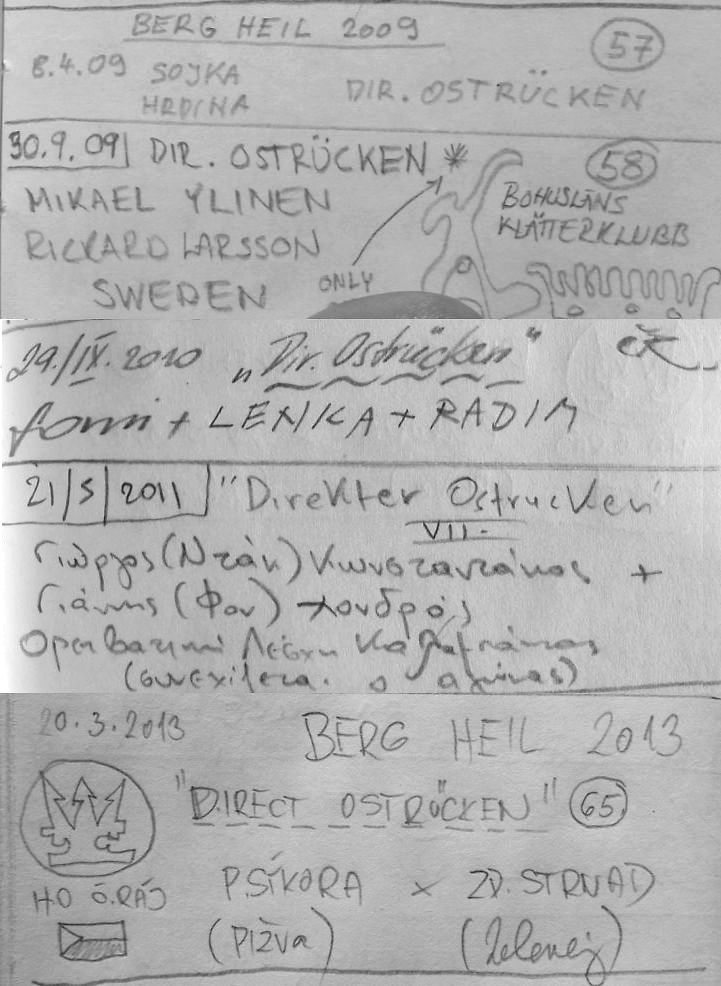 BERG HEIL 2009
57
8.4.09 SOJKA
HRDINA
DIR. OSTRÜCKEN
30.9.09 DIR. OSTRÜCKEN *
58
MIKAEL YLINEN
RICKARD LARSSON
SWEDEN
ONLY
BOHUSLÄNS
KLÄTTERKLUBB
29./IX. 2010 „Dir. Ostrücken“
+ LENKA + RADIM
21/5/2011 "Direkter Ostrucken"
VII-
Γιώργος (Ντάν) Κωνσταντάκος +
Γιάννης (Φον) Χονδρός
Ορειβατική Λέσχη Καλαμάτας
(συνεχίζεται ο αγώνας)
20.3.2013 BERG HEIL 2013
"DIRECT OSTRÜCKEN" 65
HO Č.RÁJ
P.SÍKORA × ZD. STRNAD
(PIŽVA) (Zelenej)